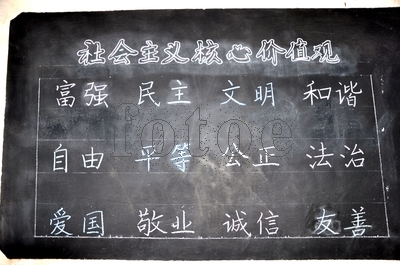 社会主义核心价值观
富强 民主 文明 和谐
自由 平等 公正 法治
爱国 敬业 诚信 友善
fotoe